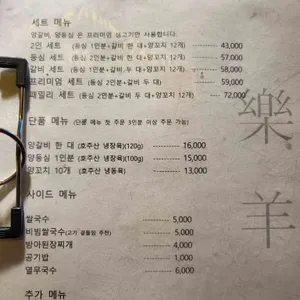 세트 메뉴
양갈비, 양등심 은 프리미엄 생고기만 사용합니다.
2인 세트 (등심 1인분+갈비 한 대+양꼬치 12개) 43,000
등심 세트 (등심 2인분+갈비 한 대+양꼬치 12개) 57,000
갈비 세트 (등심 1인분+갈비 두 대+양꼬치 12개) 58,000
프리미엄 세트 (등심 2인분+갈비 두 대) 59,000
패밀리 세트 (등심 2인분+갈비 두 대+양꼬치 12개) 72,000
단품 메뉴 (단품 메뉴 첫 주문 3인분 이상 주문 가능)
양갈비 한 대 (호주산 냉장육)(120g) 16,000
양등심 1인분 (호주산 냉장육)(100g) 15,000
양꼬치 10개 (호주산 냉동육) 13,000
사이드 메뉴
쌀국수 5,000
비빔쌀국수(고기 곁들임 추천) 5,000
방아된장찌개 4,000
공기밥 1,000
열무국수 6,000
추가 메뉴
樂羊